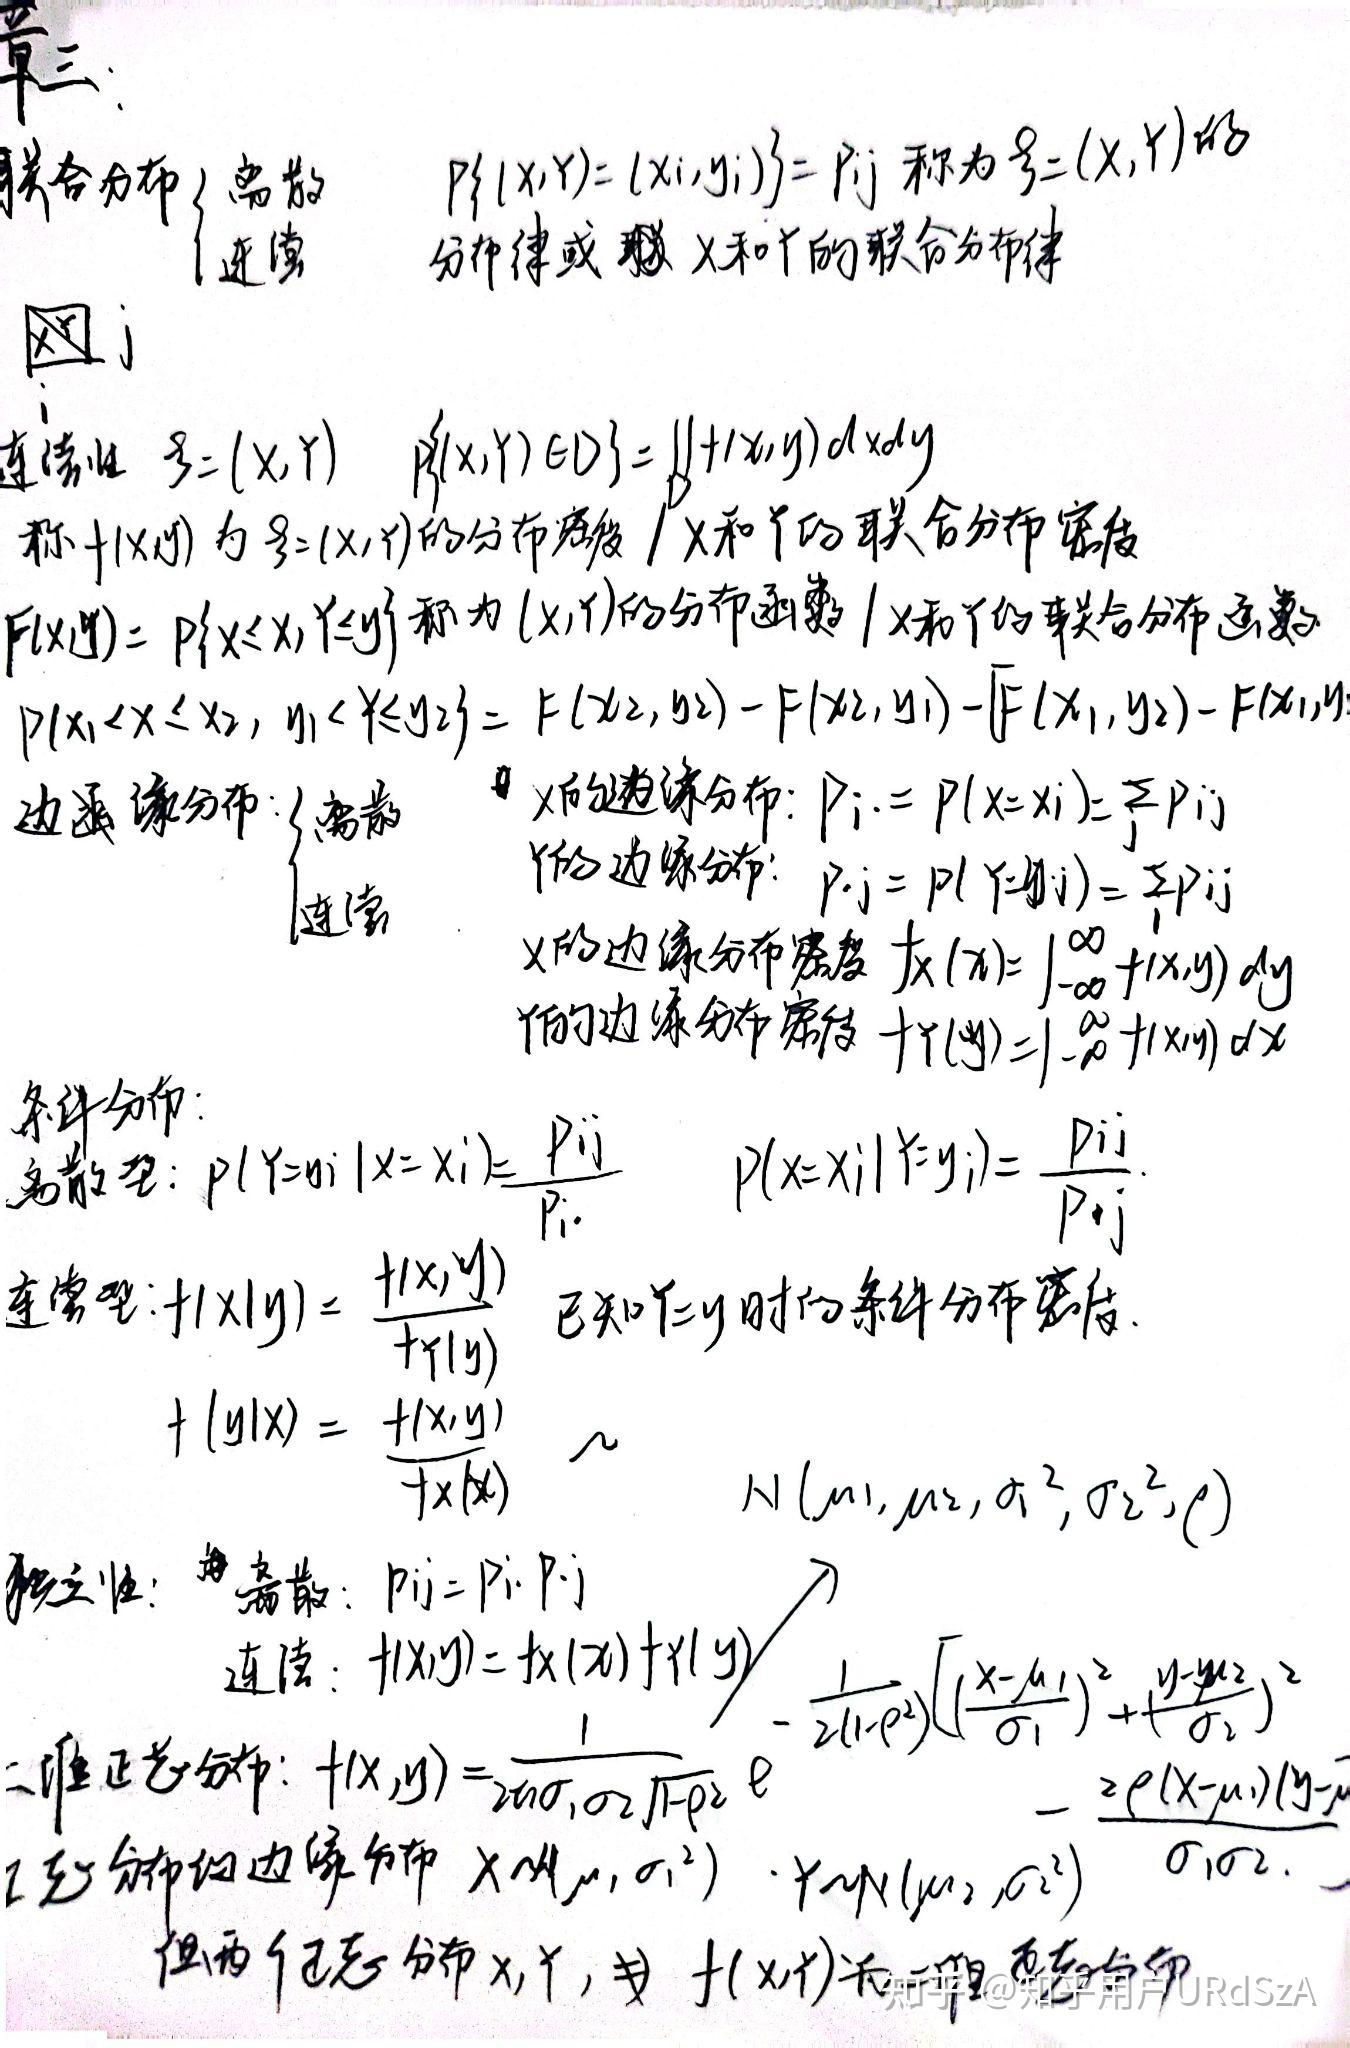 章三:
联合分布 { 离散 P{(X,Y)=(xi,yi)}=Pij 称为ξ=(X,Y)的
连续 分布律或 X和Y的联合分布律
XY j
i
连续性 ξ=(X,Y) P{(X,Y)∈D}=∬f(x,y)dxdy
D
称f(x,y)为ξ=(X,Y)的分布密度/X和Y的联合分布密度
F(x,y)=P{X≤x,Y≤y}称为(X,Y)的分布函数/X和Y的联合分布函数
P(x1<X≤x2, y1<Y≤y2}=F(x2,y2)-F(x2,y1)-[F(x1,y2)-F(x1,y
边缘分布:{离散 X的边缘分布: Pi.=P(X=xi)=∑j Pij
Y的边缘分布: P.j=P(Y=yj)=∑i Pij
连续
X的边缘分布密度 fX(x)=∫-∞^∞ f(x,y)dy
Y的边缘分布密度 fY(y)=∫-∞^∞ f(x,y)dx
条件分布:
离散型: P(Y=yi|X=xi)=Pij/Pi. P(X=xi|Y=yi)=Pij/P.j.
连续型: f(x|y)=f(x,y)/fY(y) 已知Y=y时的条件分布密度.
f(y|x)=f(x,y)/fX(x) ~
N(μ1,μ2,σ1²,σ2²,ρ)
独立性: 离散: Pij=Pi.P.j
连续: f(x,y)=fX(x)fY(y)
二维正态分布: f(x,y)=1/(2πσ1σ2√1-ρ²) e -1/(2(1-ρ²))[((x-μ1)/σ1)²+((y-μ2)/σ2)²
- 2ρ(x-μ1)(y-μ/σ1σ2.
正态分布的边缘分布 X~N(μ1,σ1²) . Y~N(μ2,σ2²)
但两个正态分布X,Y, ⇏ f(X,Y)为二维正态分布
知乎 @知乎用户URdSzA